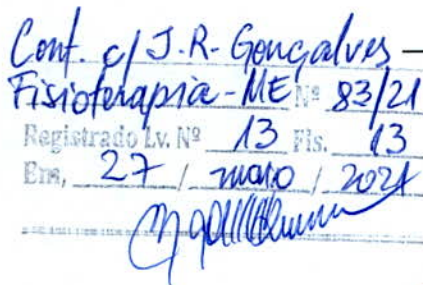 Cont. c/ J.R. Gonçalves -
Fisioterapia-ME Nº 83/21
Registrado Lv. Nº 13 Fls. 13
Em, 27 / maio / 2021